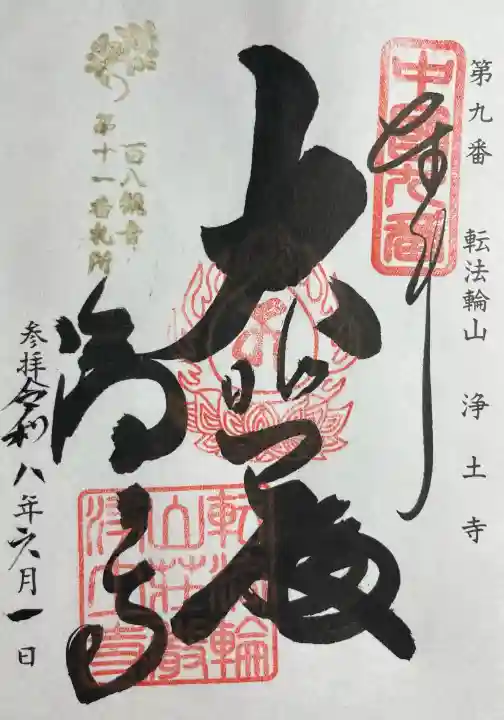 第九番 転法輪山 浄土寺
中国九番
浄土寺
転法輪
山荘厳
浄土寺
百八観音
第十一番札所
参拝令和八年六月一日